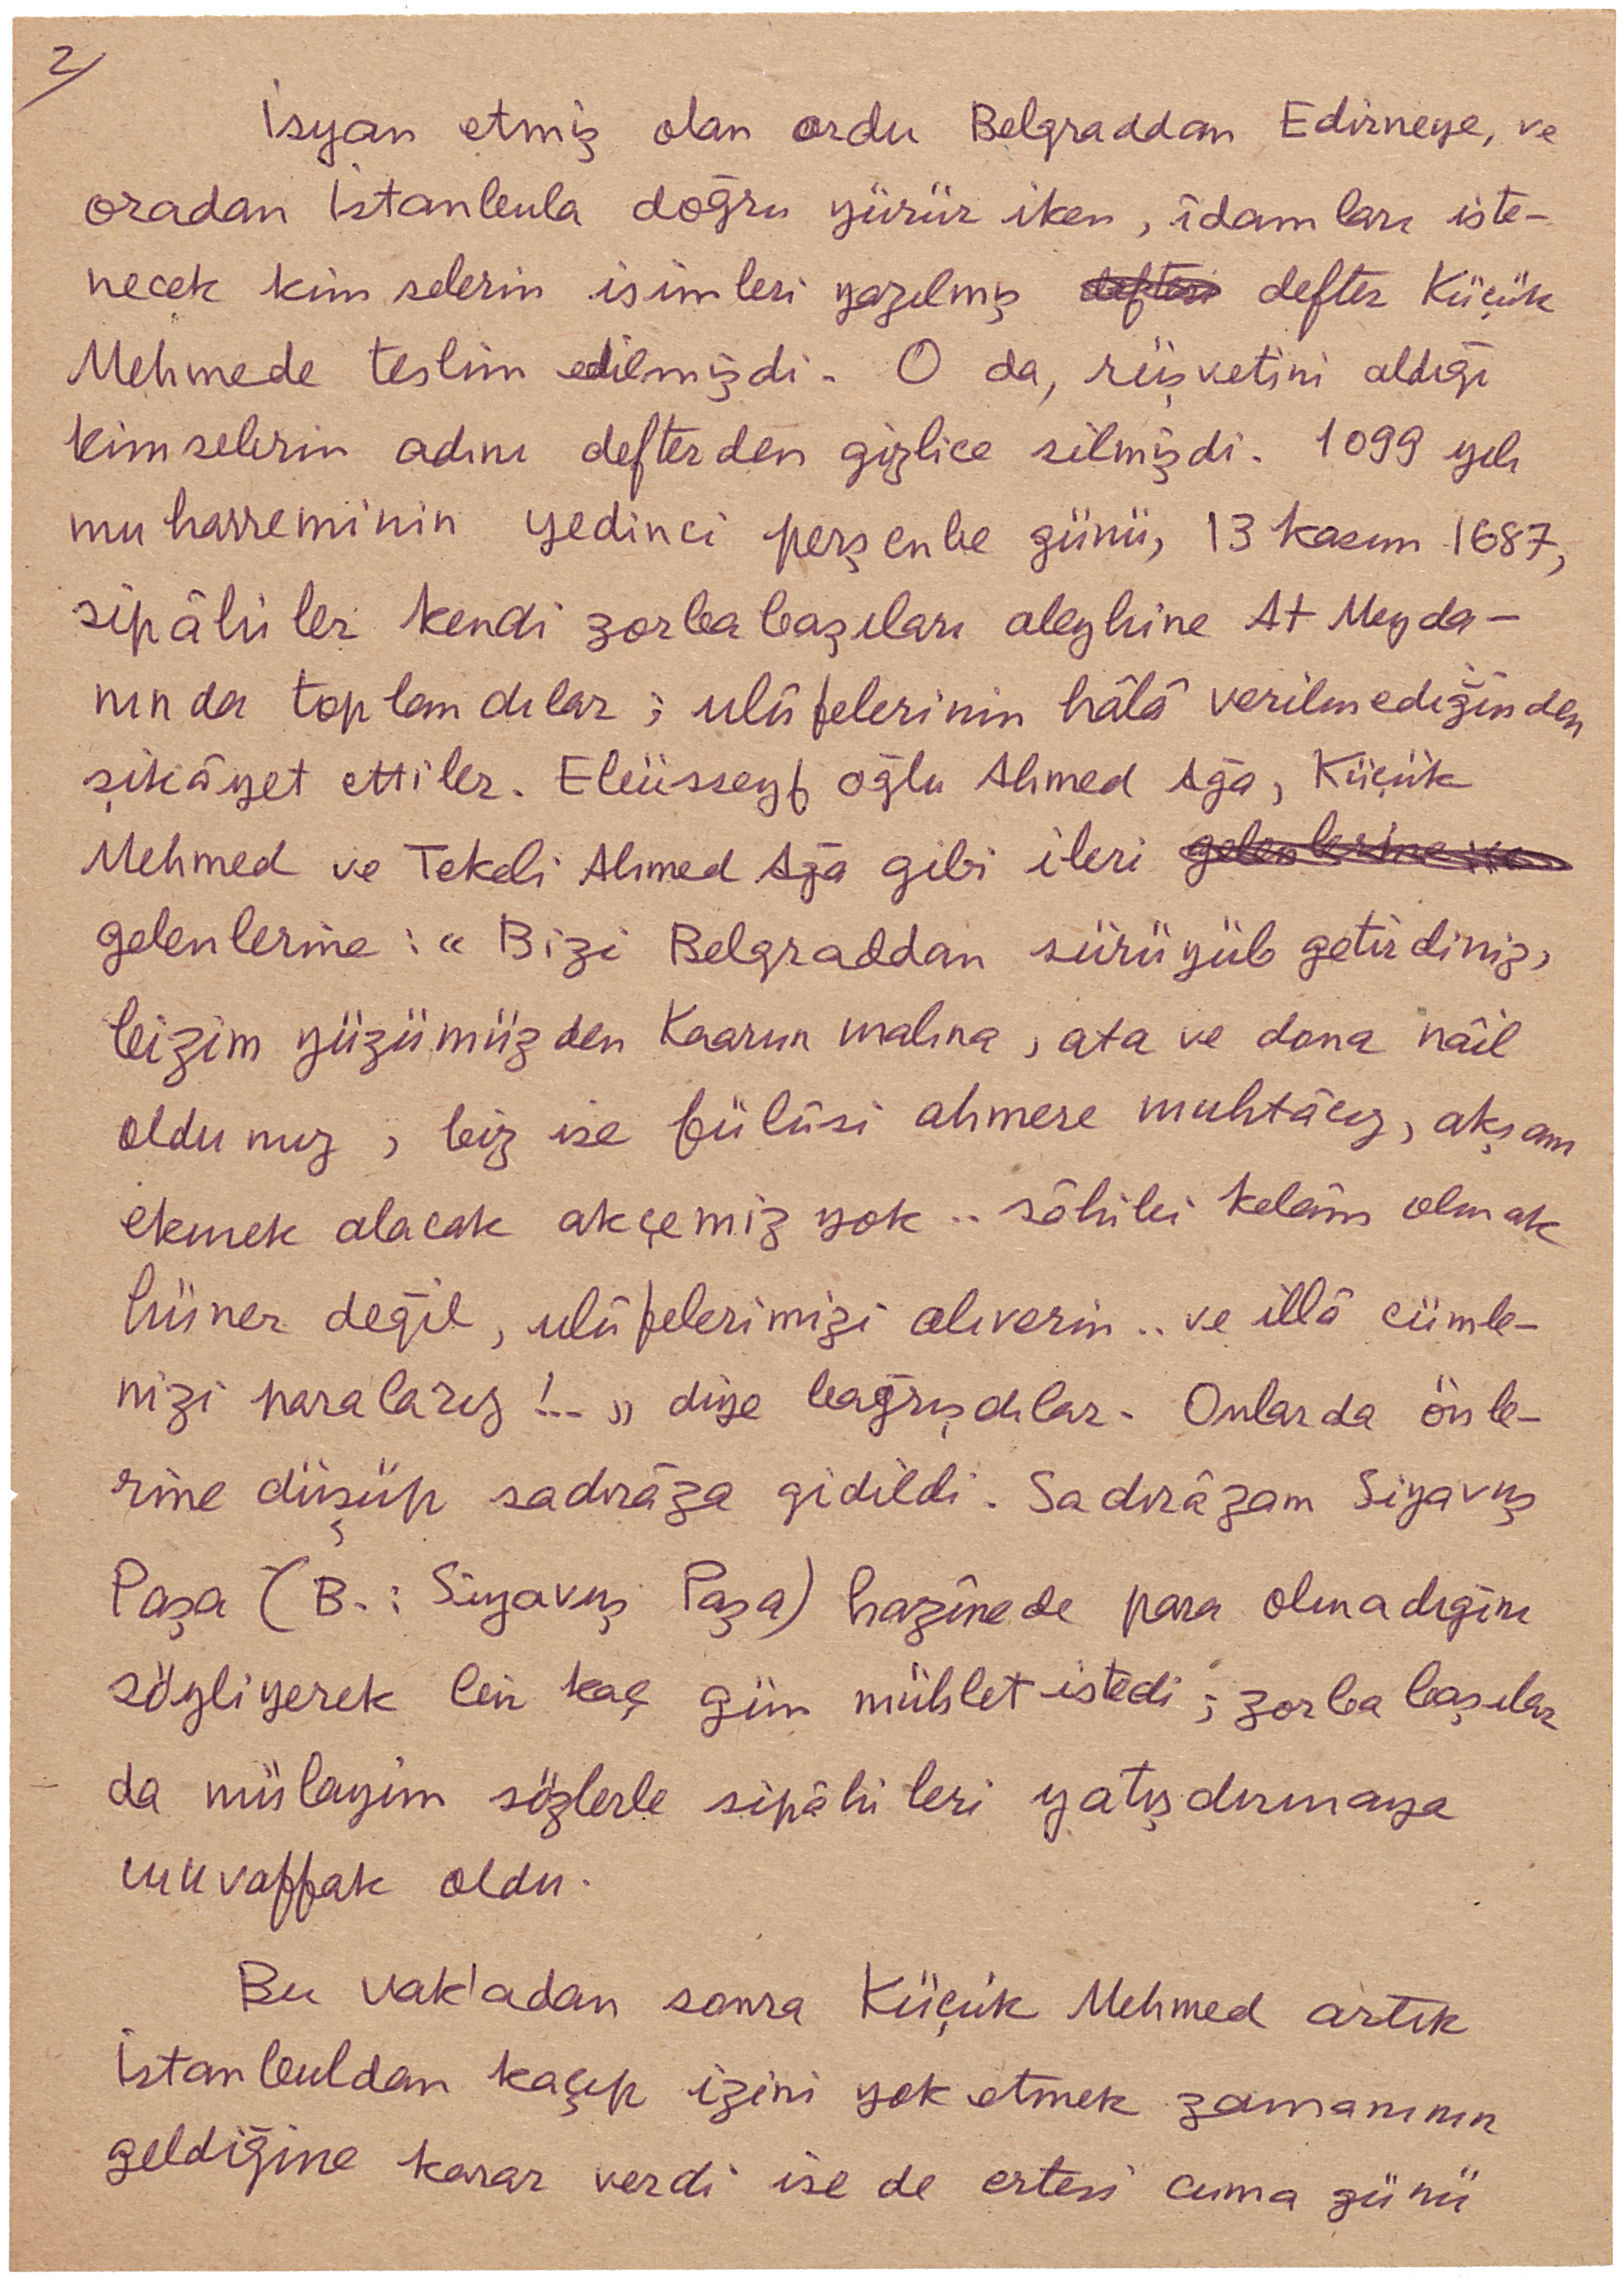 2/
İsyan etmiş olan ordu Belgraddan Edirneye, ve
oradan İstanbula doğru yürür iken, îdamları iste-
necek kimselerin isimleri yazılmış defter Küçük
Mehmede teslim edilmişdi. O da, rüşvetini aldığı
kimselerin adını defterden gizlice silmişdi. 1099 yılı
muharreminin yedinci perşenbe günü, 13 kasım 1687,
sipâhiler kendi zorbabaşıları aleyhine At Meyda-
nında toplandılar; ulûfelerinin hâlâ verilmediğinden
şikâyet ettiler. Ebüsseyf oğlu Ahmed Ağa, Küçük
Mehmed ve Tekeli Ahmed Ağa gibi ileri gelenlerine ve
gelenlerine : « Bizi Belgraddan sürüyüb getirdiniz,
bizim yüzümüzden Kaarun malına, ata ve dona nâil
oldunuz, biz ise fülûsi ahmere muhtâcız, akşam
ekmek alacak akçemiz yok .. sâhibi kelâm olmak
hüner değil, ulûfelerimizi alıverin .. ve illâ cümle-
nizi paralarız !.. » diye bağrışdılar. Onlarda önle-
rine düşüp sadırâza gidildi. Sadırâzam Siyavuş
Paşa (B. : Siyavuş Paşa) hazînede para olmadığını
söyliyerek bir kaç gün mühlet istedi ; zorba başılar
da mülayim sözlerle sipâhileri yatışdırmaya
muvaffak oldu.
Bu vak'adan sonra Küçük Mehmed artık
İstanbuldan kaçıp izini yok etmek zamanının
geldiğine karar verdi ise de ertesi cuma günü